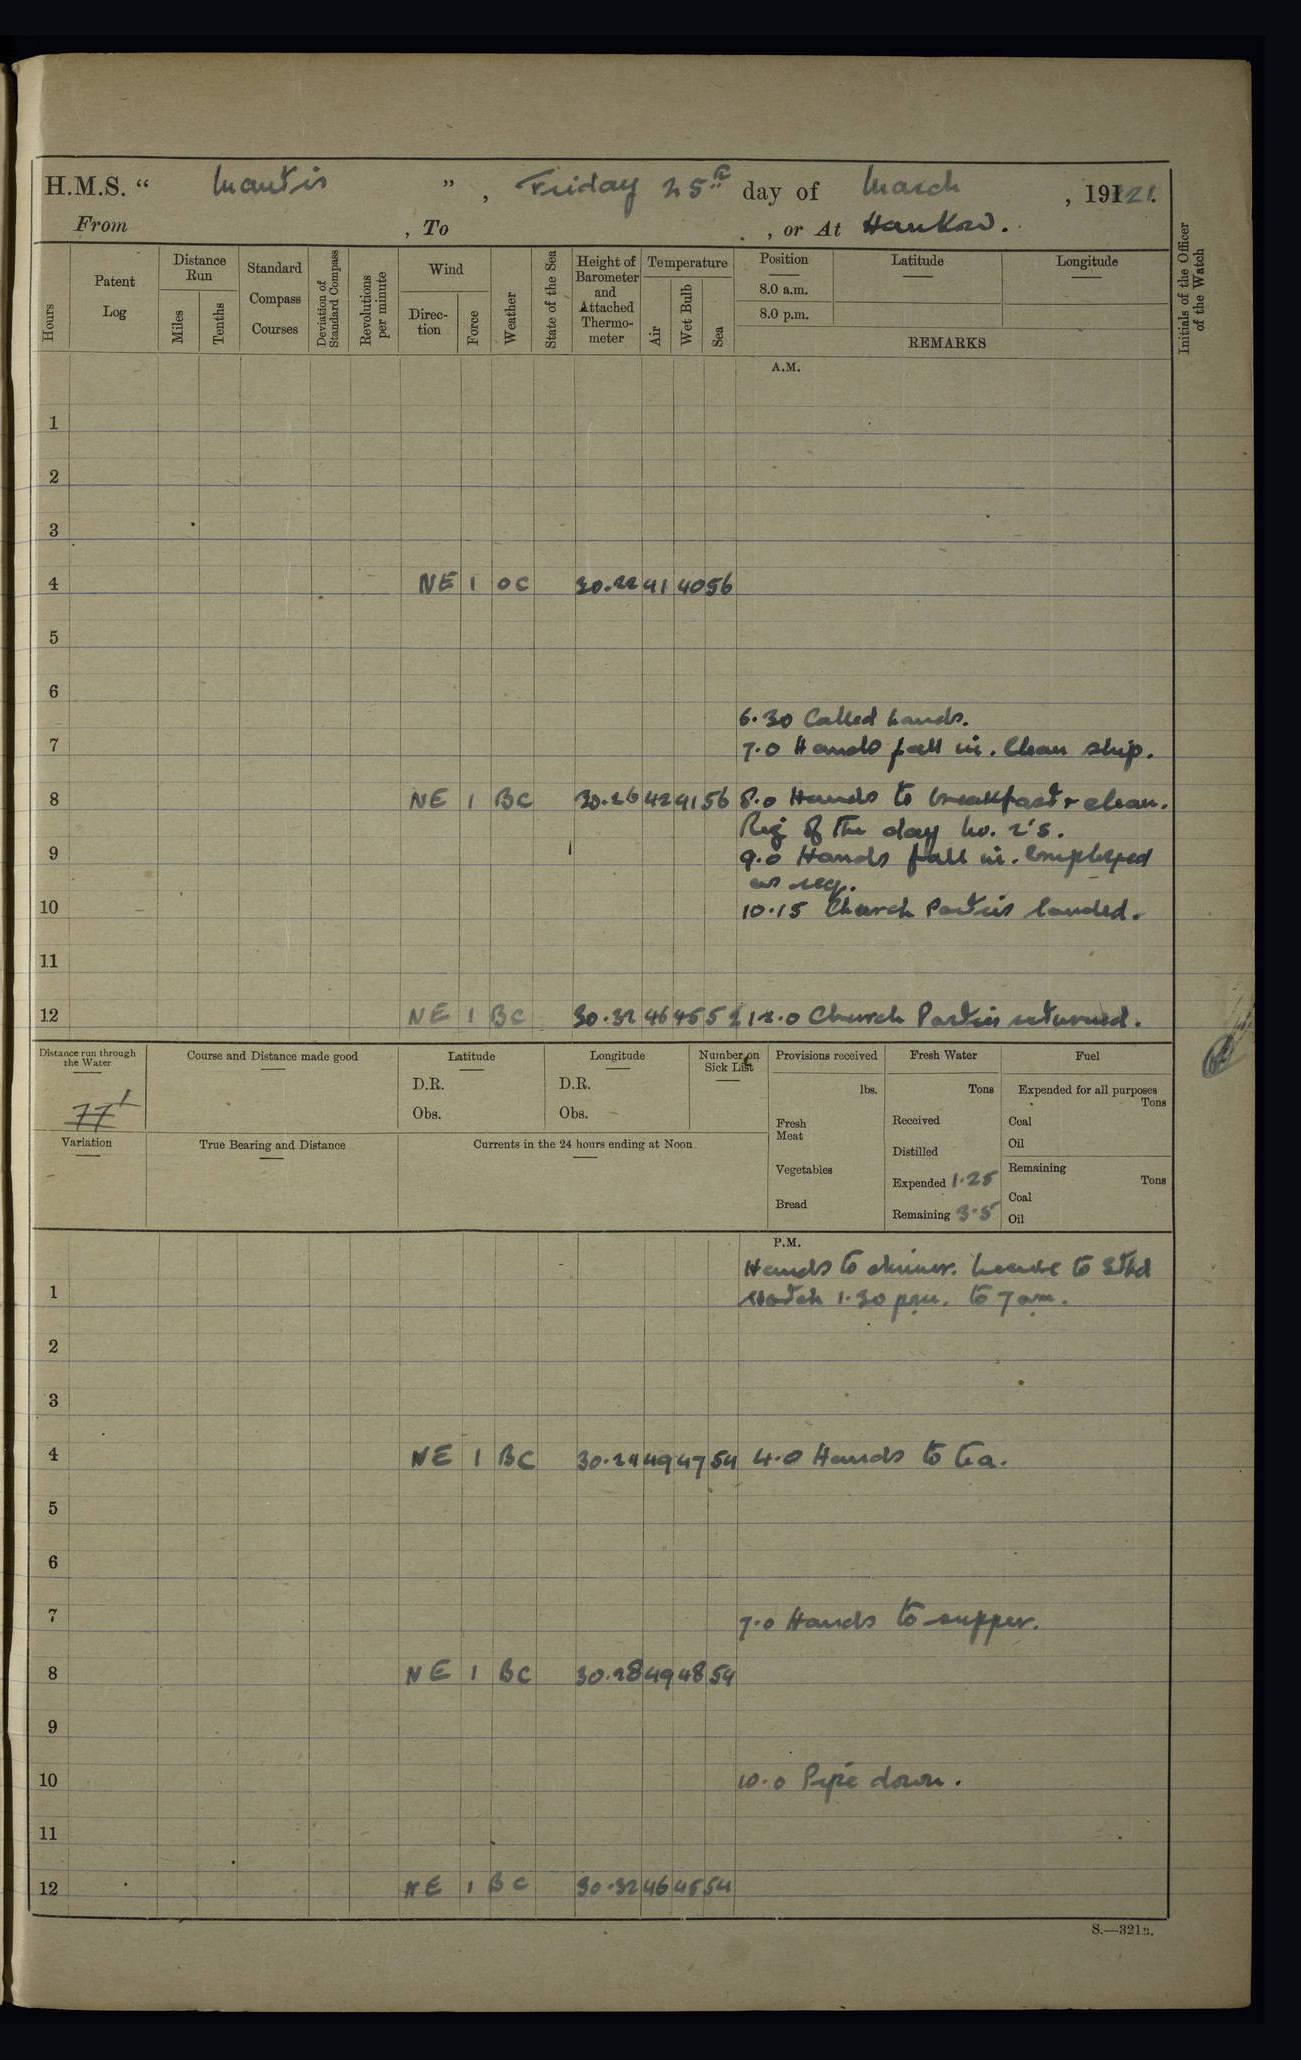 H.M.S. “ Mantis ” , Friday 25th day of March , 1921.
From , To , or At Hankow.
Hours
Patent Log
Distance Run
Miles
Tenths
Standard Compass Courses
Deviation of Standard Compass
Revolutions per minute
Wind
Direction
Force
Weather
State of the Sea
Height of Barometer and Attached Thermometer
Temperature
Air
Wet Bulb
Sea
Position
8.0 a.m.
8.0 p.m.
Latitude
Longitude
REMARKS
Initials of the Officer of the Watch
A.M.
1
2
3
4 NE 1 OC 30.22 41 40 56
5
6
6.30 Called hands.
7 7.0 Hands fall in. Clean ship.
8 NE 1 BC 30.26 42 41 56 8.0 Hands to breakfast & clean.
Rig of the day No. 2's.
9 9.0 Hands fall in. Employed
as req.
10 10.15 Church Parties landed.
11
12 NE 1 BC 30.32 46 45 52 12.0 Church Parties returned.
Distance run through the Water
Course and Distance made good
Latitude
D.R.
Obs.
Longitude
D.R.
Obs.
Number on Sick List
77 1
Variation
True Bearing and Distance
Currents in the 24 hours ending at Noon
Provisions received
lbs.
Fresh Meat
Vegetables
Bread
Fresh Water
Tons
Received
Distilled
Expended 1.25
Remaining 3.5
Fuel
Expended for all purposes
Tons
Coal
Oil
Remaining
Tons
Coal
Oil
P.M.
Hands to dinner. Leave to Stbd
1 Watch 1.30 pm. to 7 am.
2
3
4 NE 1 BC 30.24 49 47 54 4.0 Hands to tea.
5
6
7 7.0 Hands to supper.
8 NE 1 BC 30.28 49 48 54
9
10 10.0 Pipe down.
11
12 NE 1 BC 30.32 46 45 54
S.—321B.